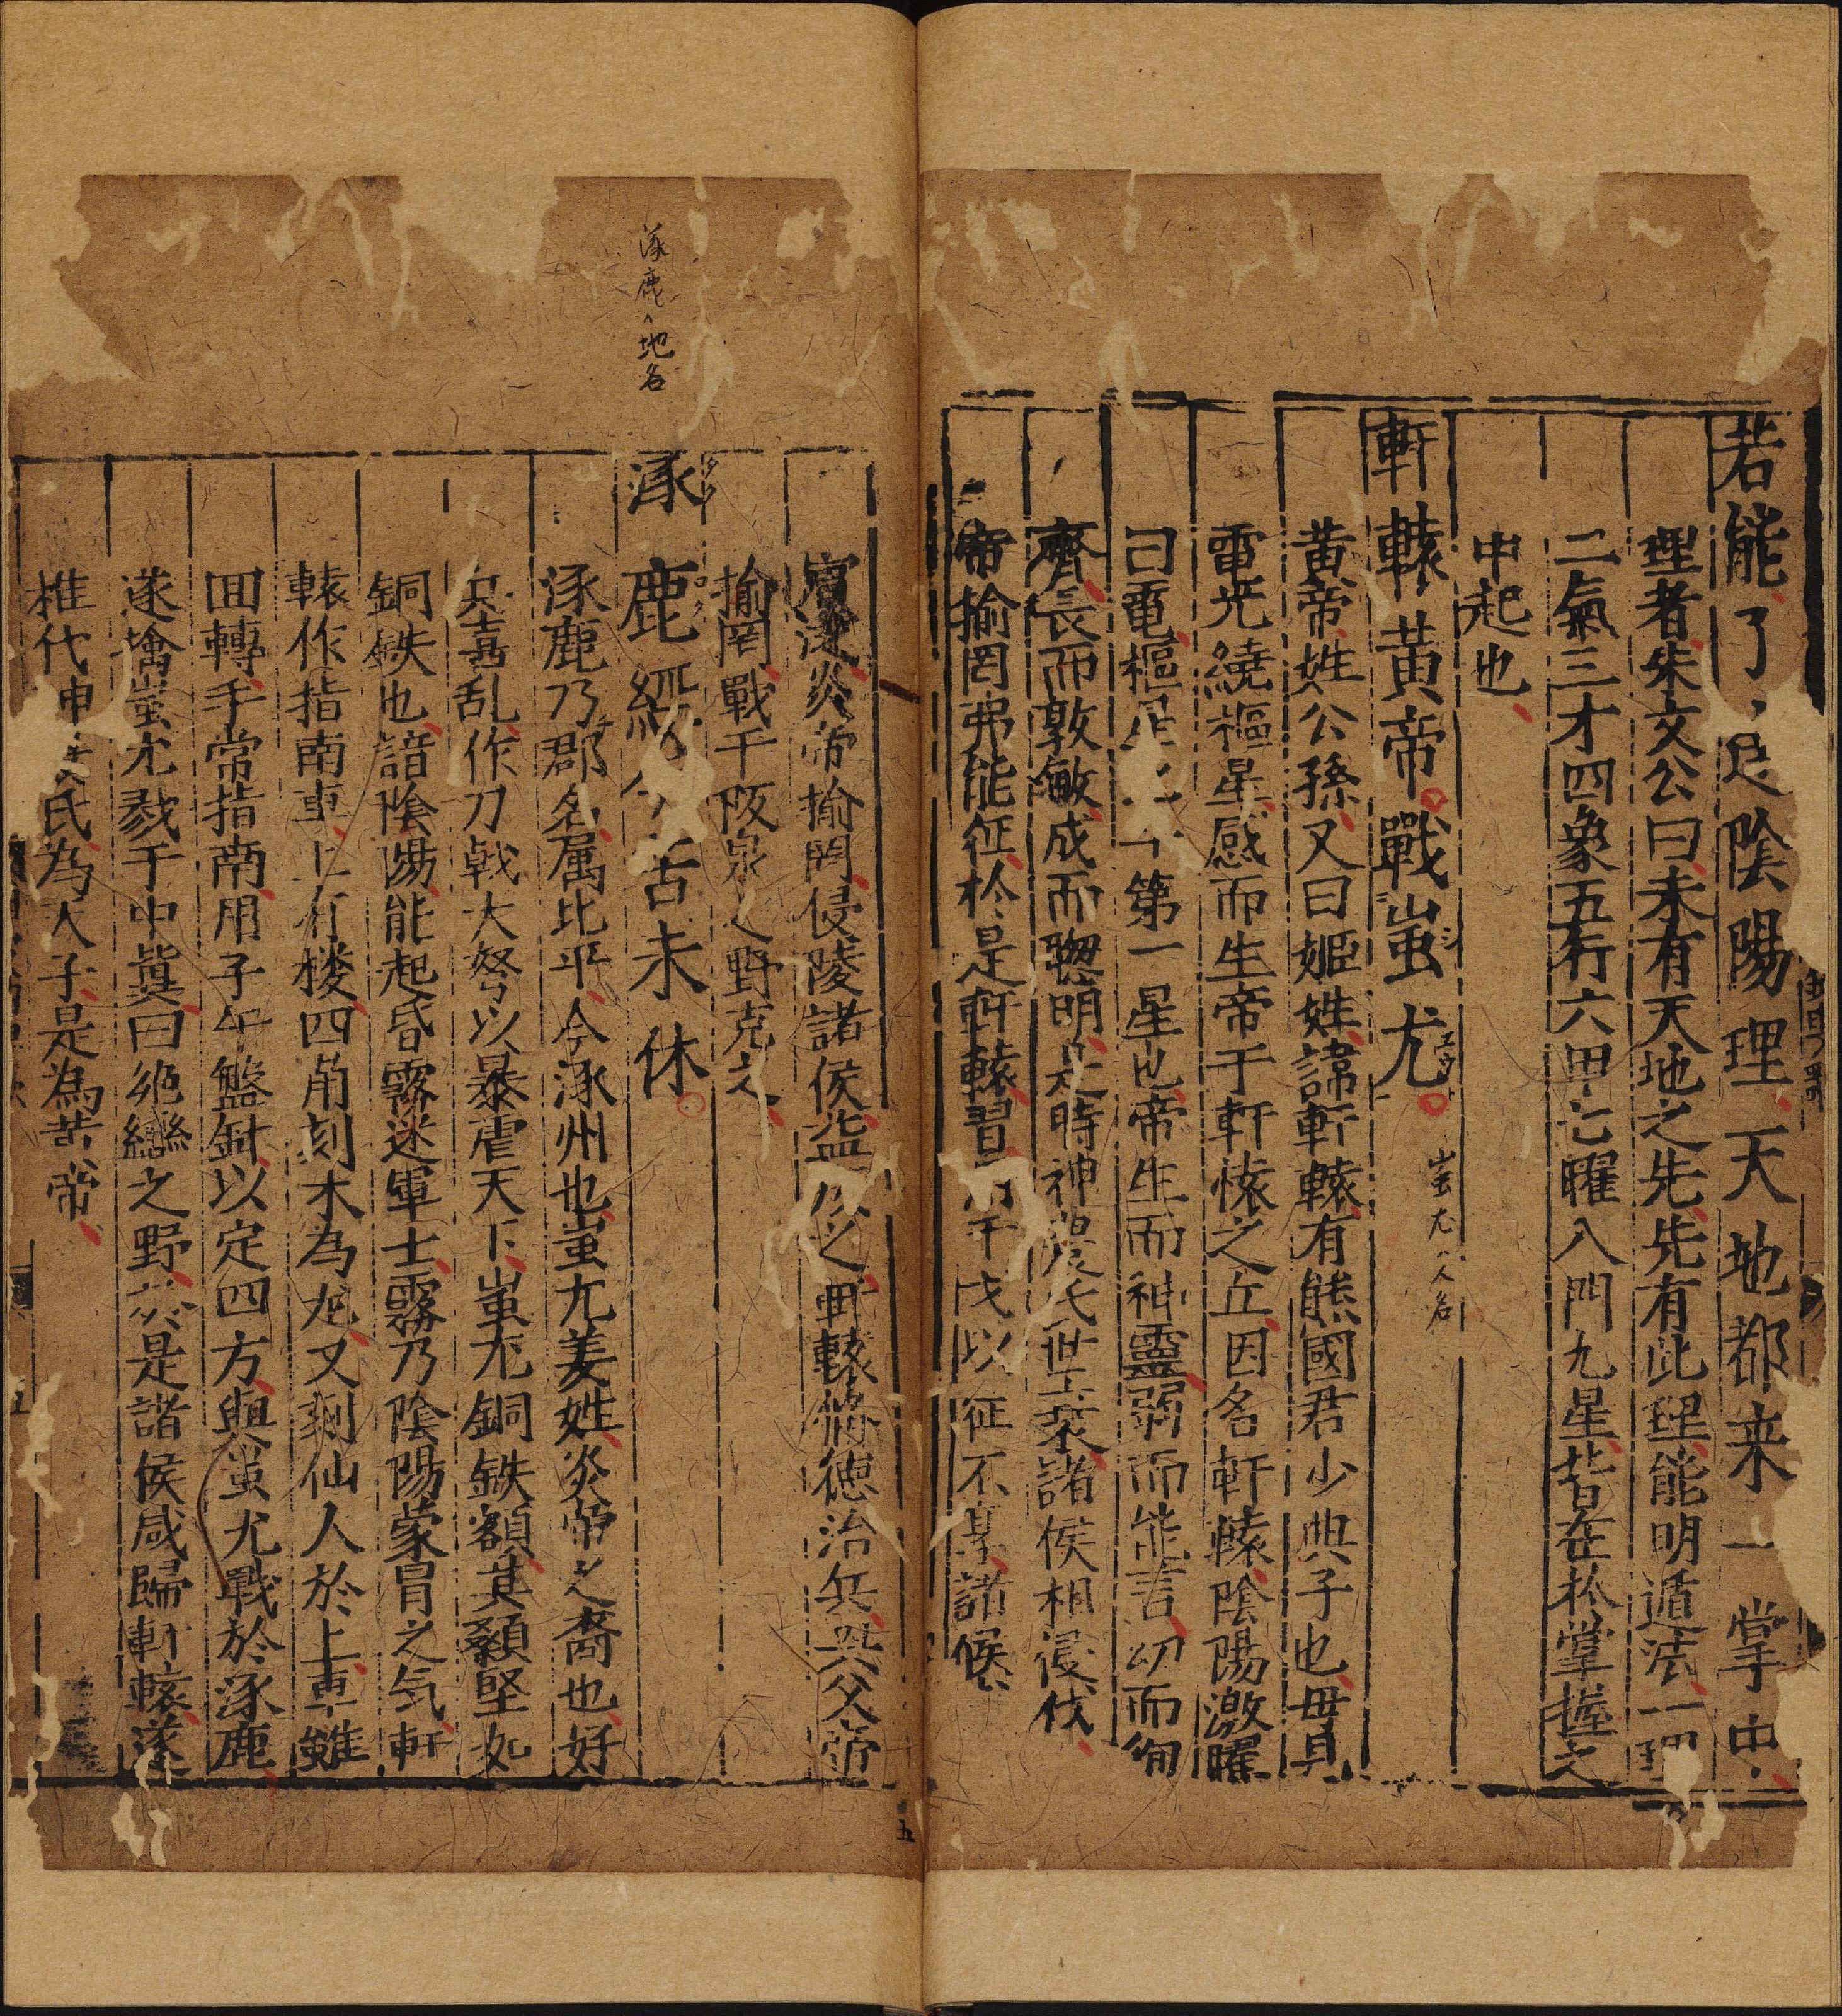 若能了達陰陽理天地都来一掌中
理者朱文公曰未有天地之先先有此理能明遁法一理
二氣三才四象五行六甲七曜八門九星皆在於掌握之
中起也
軒轅黄帝戰蚩尤
蚩尤人名
黄帝姓公孫又曰姬姓諱軒轅有熊國君少典子也母見
電光繞樞星感而生帝于軒轅之丘因名軒轅陰陽激曜
曰電樞星第一星也帝生而神靈弱而能言幼而徇
齊長而敦敏成而聦明是時神農氏世衰諸侯相侵伐
帝揄罔弗能征於是軒轅習干戈以征不享諸侯
賓從炎帝揄罔侵陵諸侯益叛之軒轅修德治兵與炎帝
揄罔戰于阪泉之野克之
涿鹿經今若未休
涿鹿地名
涿鹿乃郡名属北平今涿州也蚩尤姜姓炎帝之裔也好
兵喜乱作刀戟大弩以暴虐天下蚩尤銅鉄額其顙堅如
銅鉄也諳陰陽能起昏霧迷軍士霧乃陰陽蒙冒之気軒
轅作指南車上有楼四角刻木為龙又刻仙人於上車雖
囬轉手常指南用子午盤針以定四方與蚩尤戰於涿鹿
遂擒蚩尤戮于中冀曰絕轡之野於是諸侯咸歸軒轅遂
推代神農氏為天子是為黄帝
五